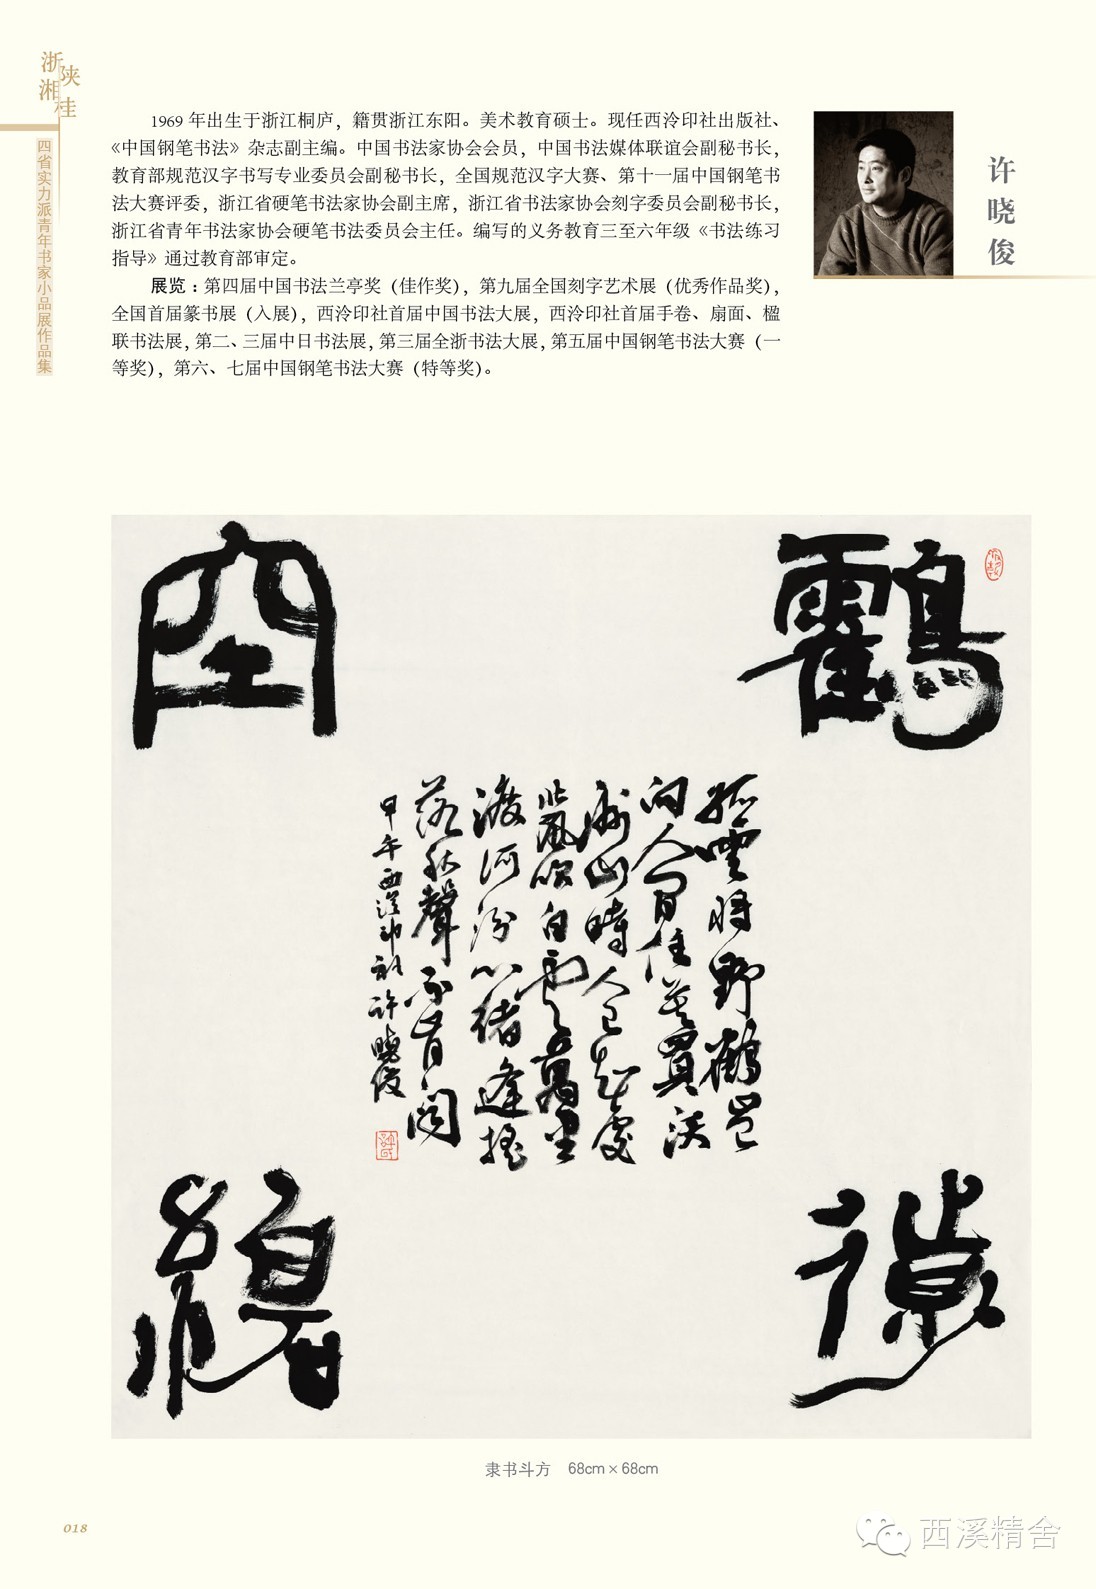 浙陕
湘桂
四省实力派青年书家小品展作品集
1969 年出生于浙江桐庐，籍贯浙江东阳。美术教育硕士。现任西泠印社出版社、
《中国钢笔书法》杂志副主编。中国书法家协会会员，中国书法媒体联谊会副秘书长，
教育部规范汉字书写专业委员会副秘书长，全国规范汉字大赛、第十一届中国钢笔书
法大赛评委，浙江省硬笔书法家协会副主席，浙江省书法家协会刻字委员会副秘书长，
浙江省青年书法家协会硬笔书法委员会主任。编写的义务教育三至六年级《书法练习
指导》通过教育部审定。
展览：第四届中国书法兰亭奖（佳作奖），第九届全国刻字艺术展（优秀作品奖），
全国首届篆书展（入展），西泠印社首届中国书法大展，西泠印社首届手卷、扇面、楹
联书法展，第二、三届中日书法展，第三届全浙书法大展，第五届中国钢笔书法大赛（一
等奖），第六、七届中国钢笔书法大赛（特等奖）。
许晓俊
鸖
空
孤雲將野鶴豈
向人間住莫買沃
洲山時人已知處
北風吹白雲萬里
渡河汾心緒逢搖
落秋聲不聞
甲午西泠印社許曉俊
隶书斗方 68cm×68cm
018
西溪精舍